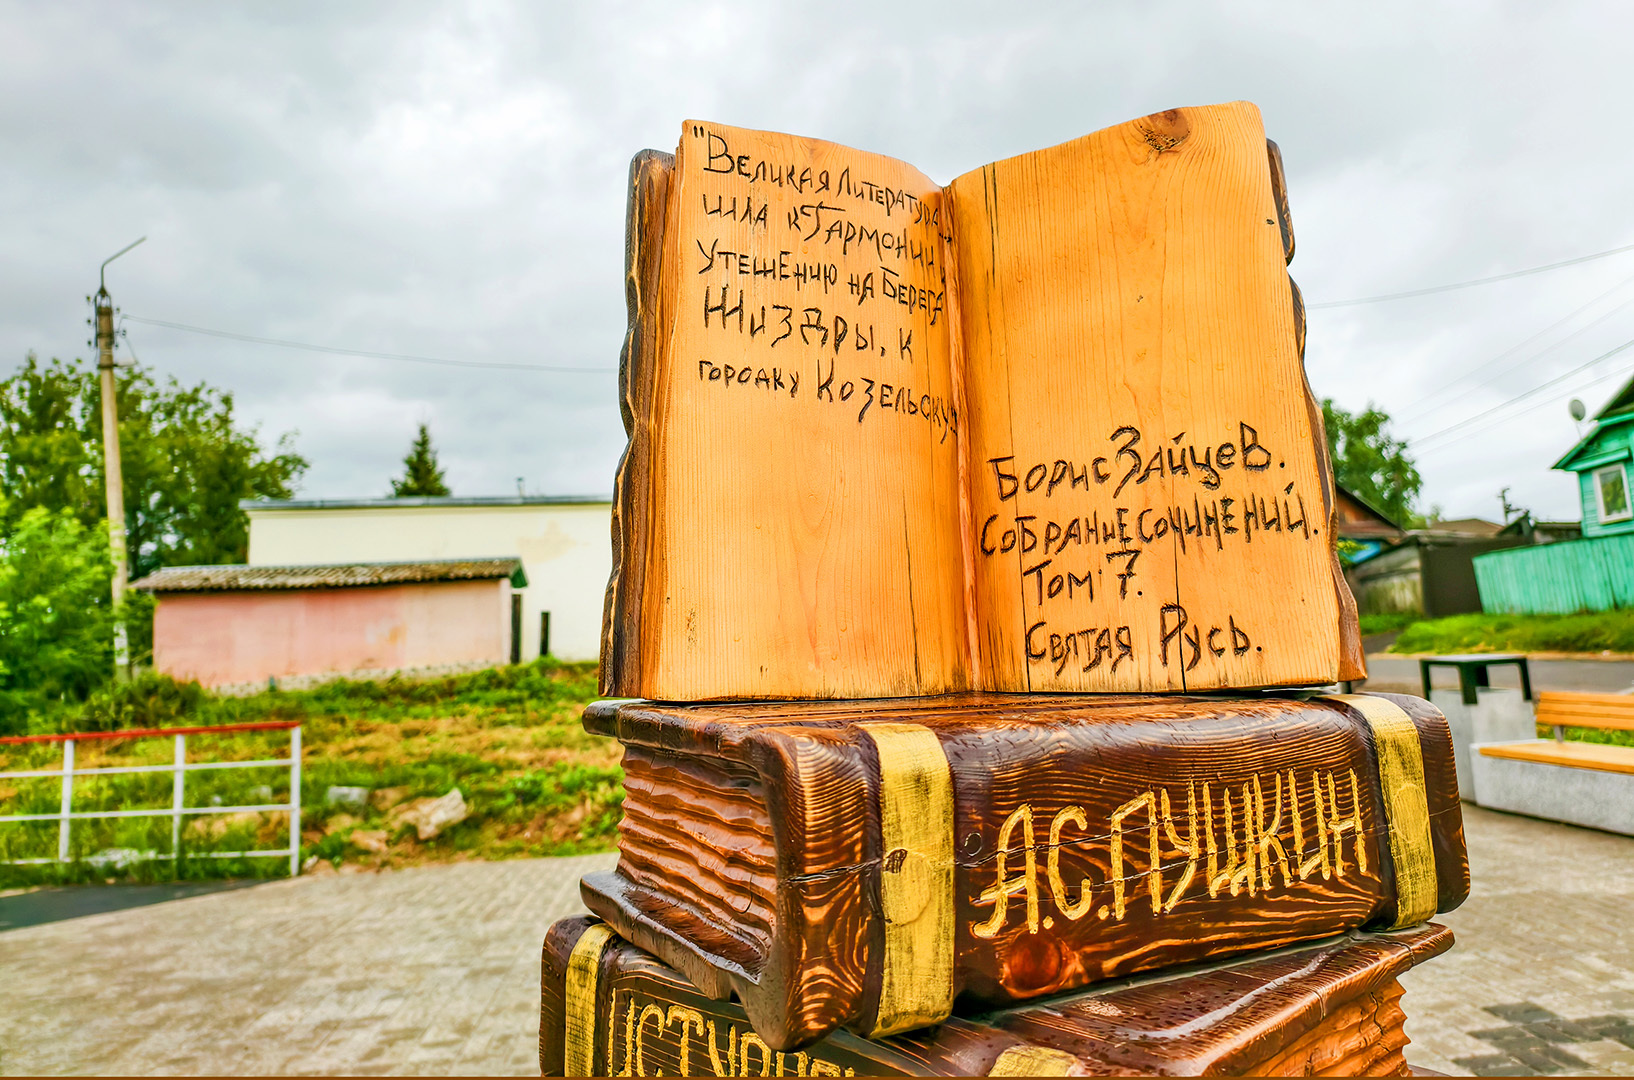 "Великая Литература
шла к Гармонии и
утешению на Берега
Жиздры, к
городку Козельску"
Борис Зайцев.
Собрание сочинений.
Том 7.
Святая Русь.
А.С.Пушкин